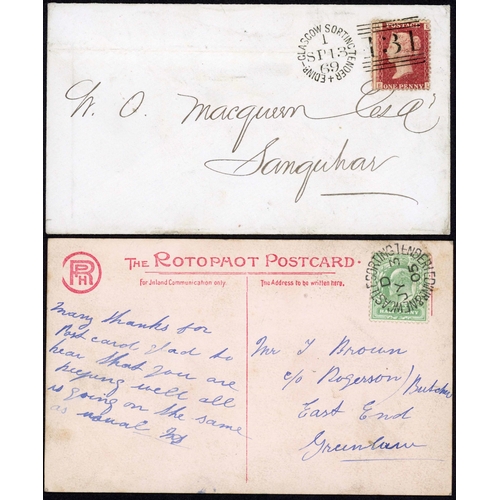 EDINR-GLASGOW SORTING TENDER
1
SP 13
69
131
ONE PENNY
W. O. Macqueen Esqr
Sanquhar
RPH
THE ROTOPHOT POSTCARD.
For Inland Communication only.
The Address to be written here.
SORTING TENDER EDINR & NEWCASTLE
D
JY
05
Many thanks for
Post card glad to
hear that you are
keeping well all
is going on the same
as usual
Mr T Brown
c/o Rogerson) Butcher
East End
Greenlaw